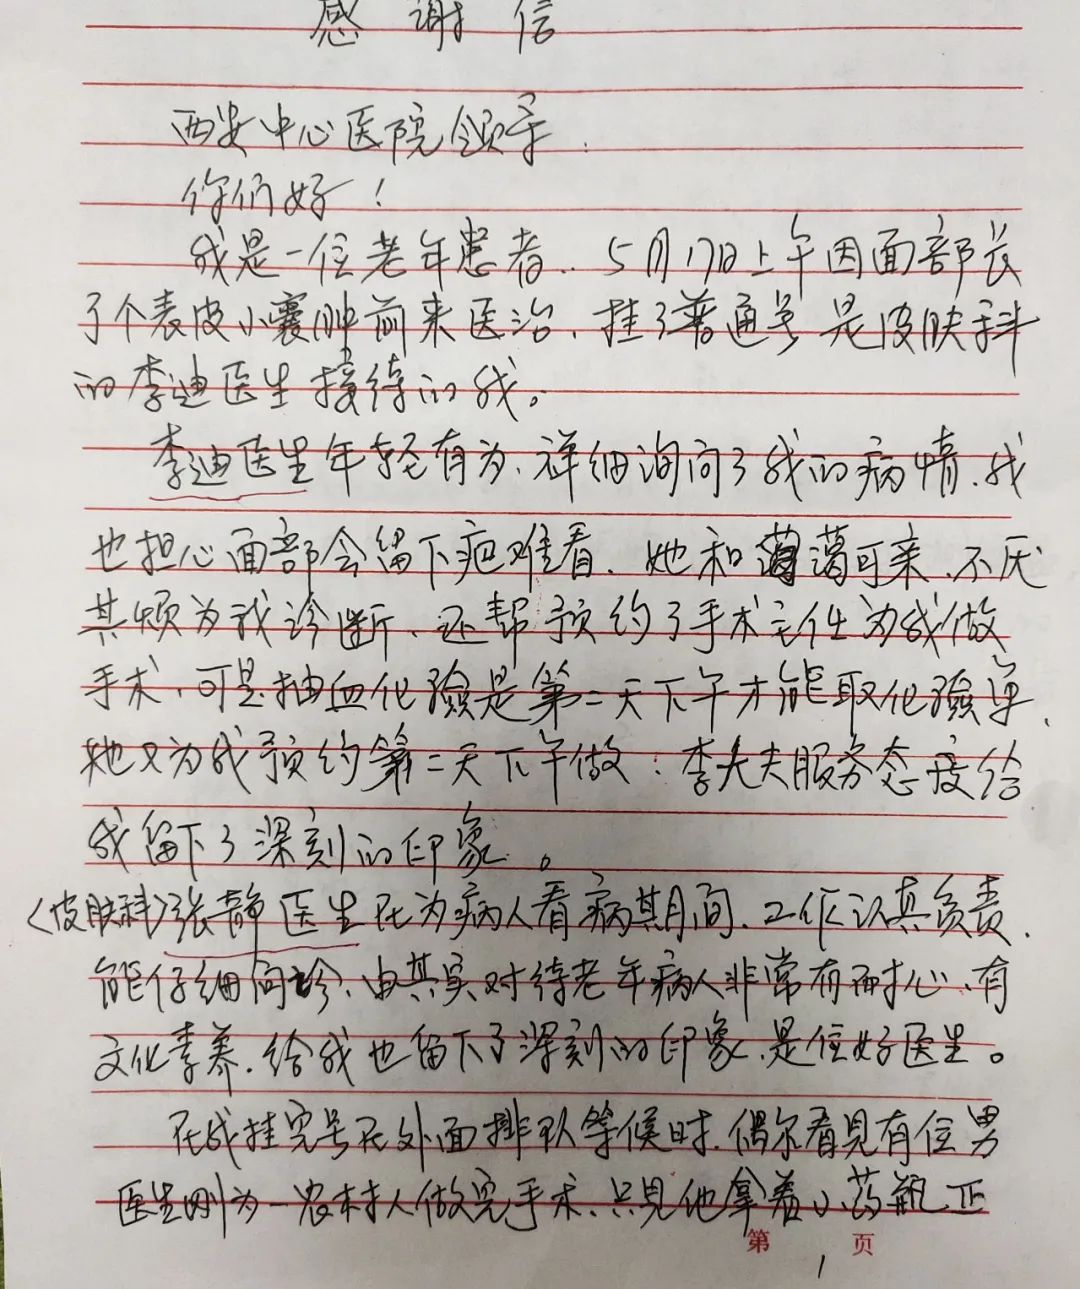 感谢信
西安中心医院领导:
你们好!
我是一位老年患者..5月17日上午因面部长
了个表皮小囊肿前来医治,挂了普通号是皮肤科
的李迪医生接待的我。
李迪医生年轻有为,详细询问了我的病情,我
也担心面部会留下疤难看,她和蔼可亲、不厌
其烦为我诊断,还帮预约了手术主任为我做
手术,可是抽血化验是第二天下午才能取化验单,
她又为我预约第二天下午做:李大夫服务态度给
我留下了深刻的印象。
〈皮肤科〉张静医生在为病人看病其月间,工作认真负责,
能仔细问诊,尤其实对待老年病人非常有耐心、有
文化素养,给我也留下了深刻的印象,是位好医生。
在我挂完号在外面排队等候时,偶尔看见有位男
医生刚为一农村人做完手术,只见他拿着小药瓶正
第1页